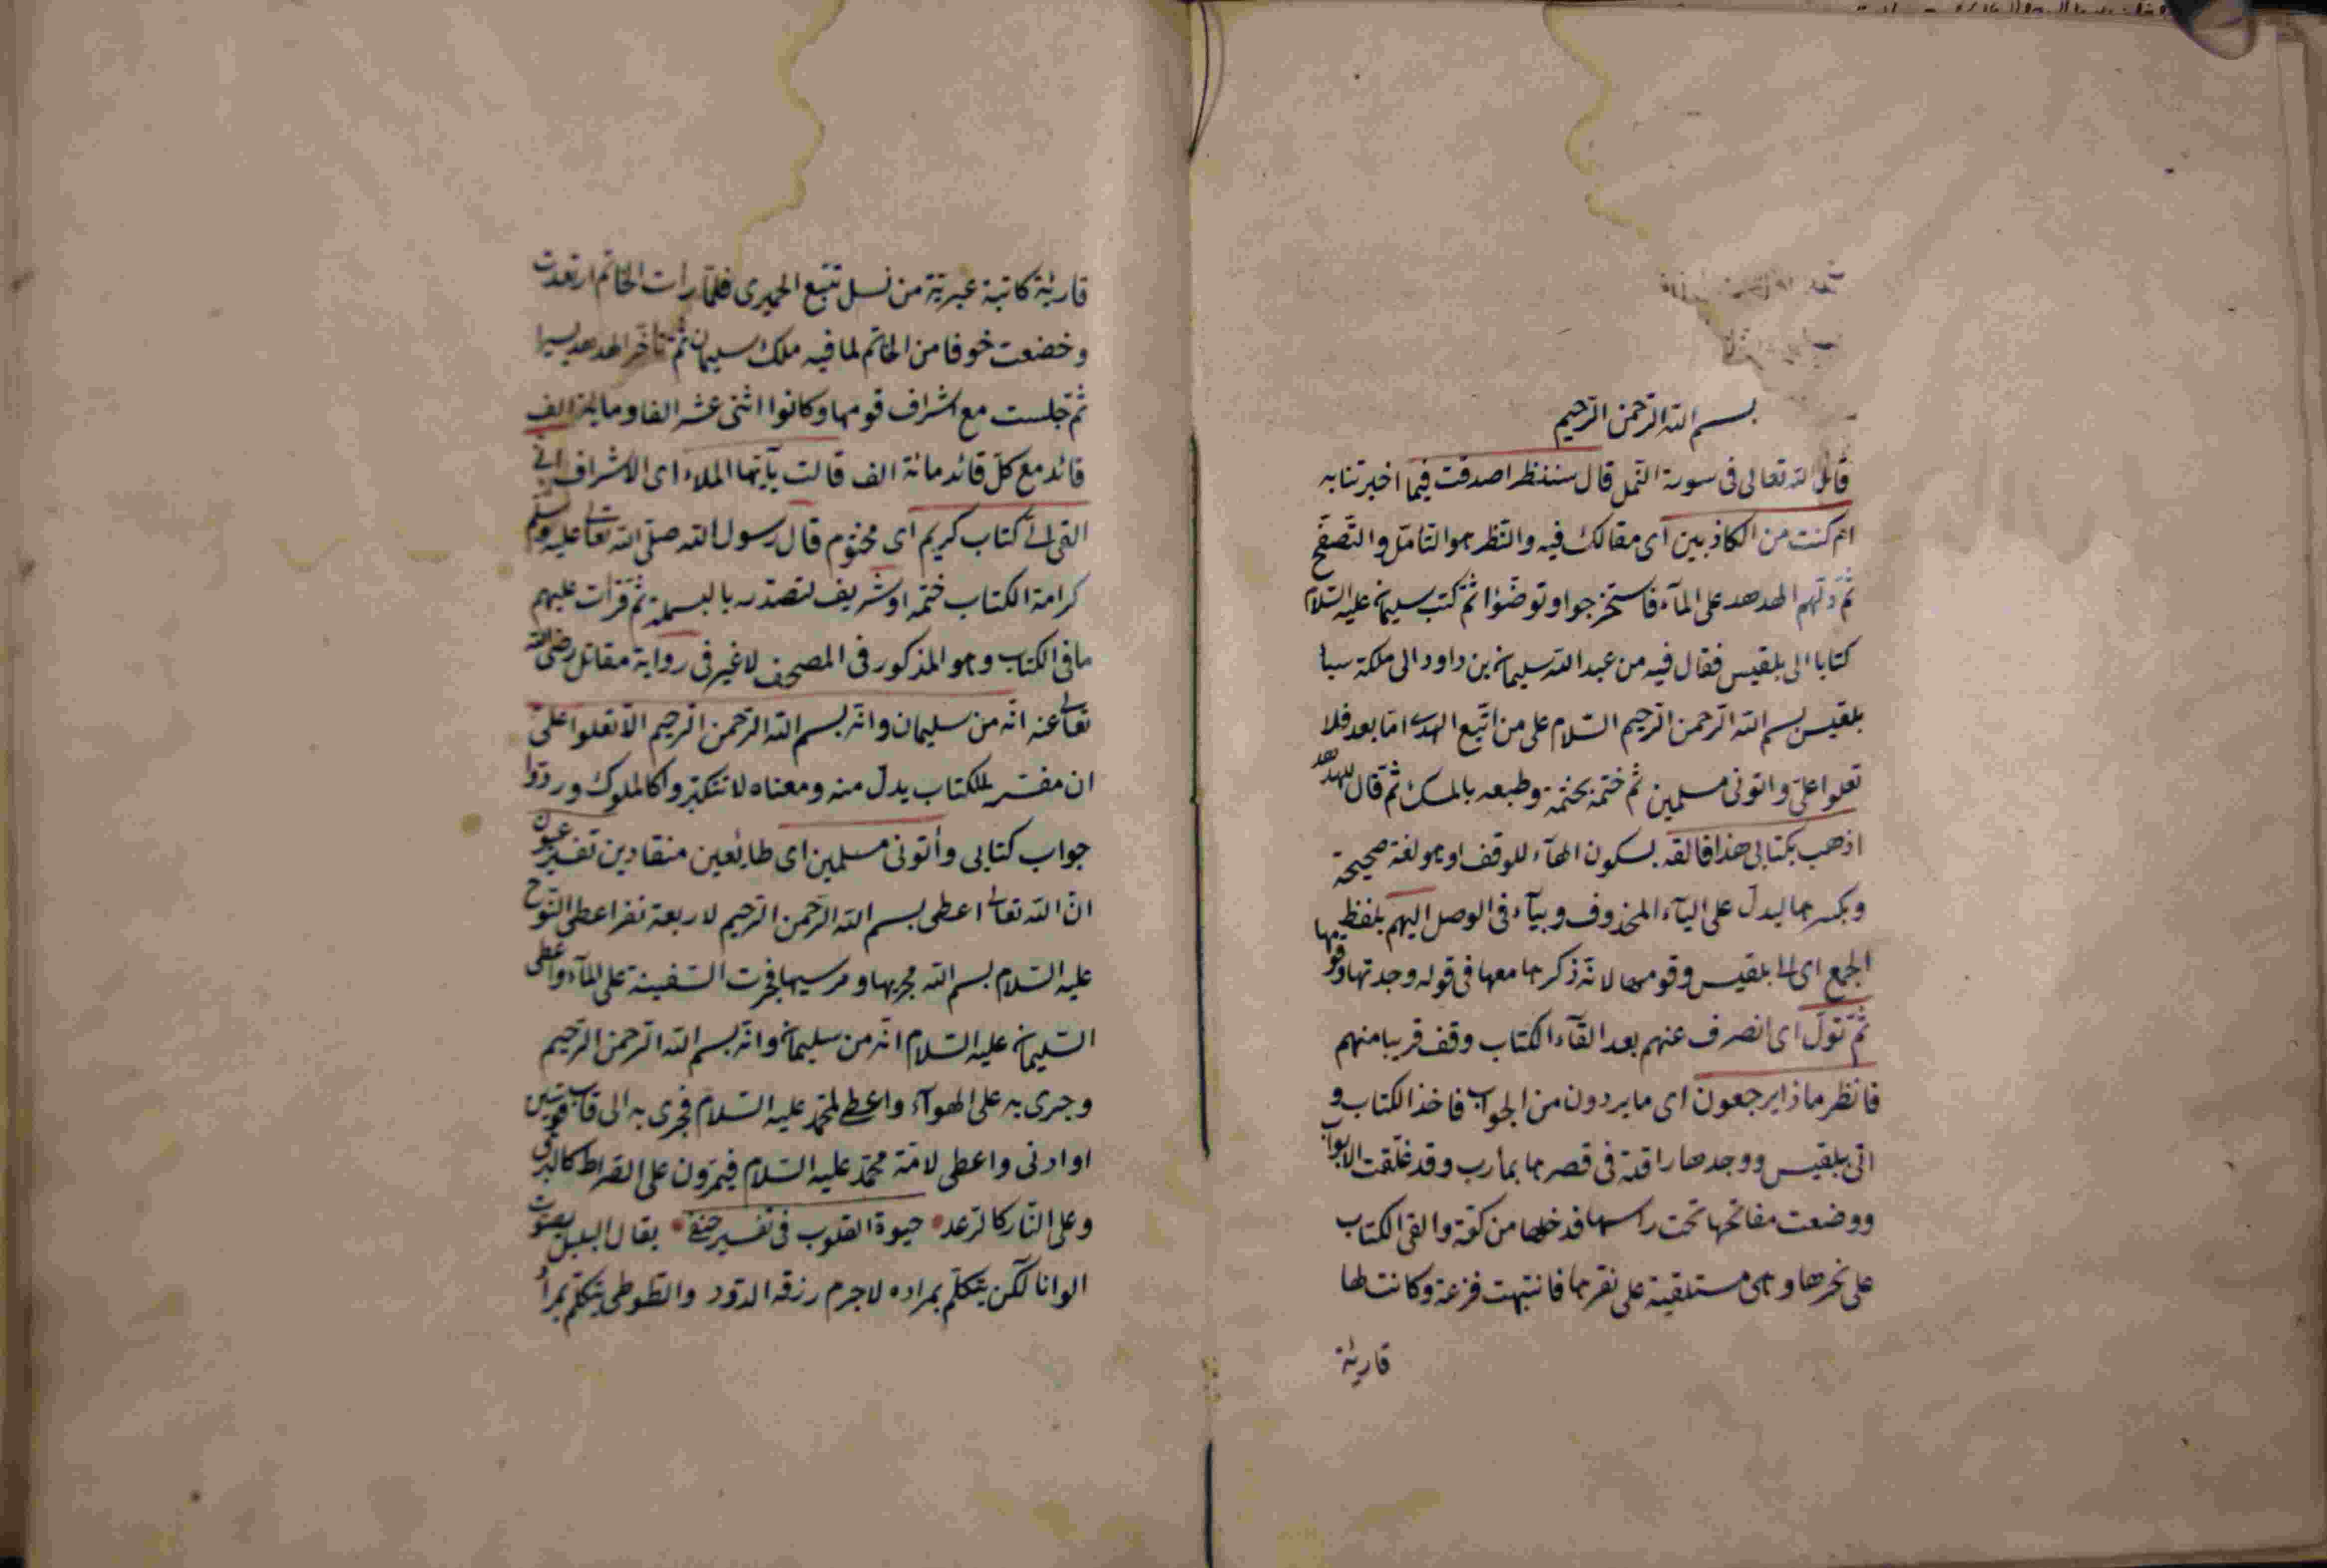 بسم الله الرحمن الرحيم
قال الله تعالى فى سورة النمل قال سننظر اصدقت فيما اخبرتنا به
ام كنت من الكاذبين اى مقالك فيه والنظر هو التامل والتصفح
ثم دلهم الهدهد على المآء فاستخرجوا وتوضؤا ثم كتب سليمان عليه السلام
كتابا الى بلقيس فقال فيه من عبد الله سليمان بن داود الى ملكة سبا
بلقيس بسم الله الرحمن الرحيم السلام على من اتبع الهدى اما بعد فلا
تعلوا على واتونى مسلمين ثم ختمه بختمة وطبعه بالمسك ثم قال للهدهد
اذهب بكتابى هذا فالقه بسكون الهآء للوقف او هو لغة صحيحة
وبكسرها ليدل على اليآء المحذوف وبيآء فى الوصل اليهم بلفظ
الجمع اى الى بلقيس وقومها لانه ذكرها معها فى قوله وجدتها وقومها
ثم تول اى انصرف عنهم بعد القآء الكتاب وقف قريبا منهم
فانظر ماذا يرجعون اى ما يردون من الجواب فاخذ الكتاب و
اتى بلقيس ووجدها راقدة فى قصرها بمارب وقد غلقت الابواب
ووضعت مفاتحها تحت راسها فدخلها من كوة والقى الكتاب
على نحرها وهى مستلقية على نقرها فانتبهت فزعة وكانت لها
قارئة
قارئة كاتبة عبرية من نسل تبع الحميرى فلما رات الخاتم ارتعدت
وخضعت خوفا من الخاتم لما فيه ملك سليمان ثم تاخر الهدهد يسيرا
ثم جلست مع اشراف قومها وكانوا اثنى عشر الفا ومائة الف
قائد مع كل قائد مائة الف قالت يآيها الملاء اى الاشراف انى
القى الى كتاب كريم اى مختوم قال رسول الله صلى الله تعالى عليه وسلم
كرامة الكتاب ختمه او شريف لتصدره بالبسملة ثم قرات عليهم
ما فى الكتاب وهو المذكور فى المصحف لا غير فى رواية مقاتل رضى الله
تعالى عنه انه من سليمان وانه بسم الله الرحمن الرحيم الا تعلوا على
ان مفسر للكتاب يدل منه ومعناه لا تتكبروا كالملوك وردوا
جواب كتابى وأتونى مسلمين اى طايعين منقادين تفسير عيون
ان الله تعالى اعطى بسم الله الرحمن الرحيم لاربعة نفر اعطى النوح
عليه السلام بسم الله مجريها ومرسيها فجرت السفينة على المآء واعطى
السليمان عليه السلام انه من سليمان وانه بسم الله الرحمن الرحيم
وجرى به على الهوآء واعطى لمحمد عليه السلام فجرى به الى قاب قوسين
او ادنى واعطى لامة محمد عليه السلام فيمرون على الصراط كالبرق
وعلى النار كالرعد حيوة القلوب فى تفسير حنفى يقال البلبل يصوت
الوانا لكن يتكلم بمراده لا جرم رزقه الدود والطوطى يتكلم بمراد